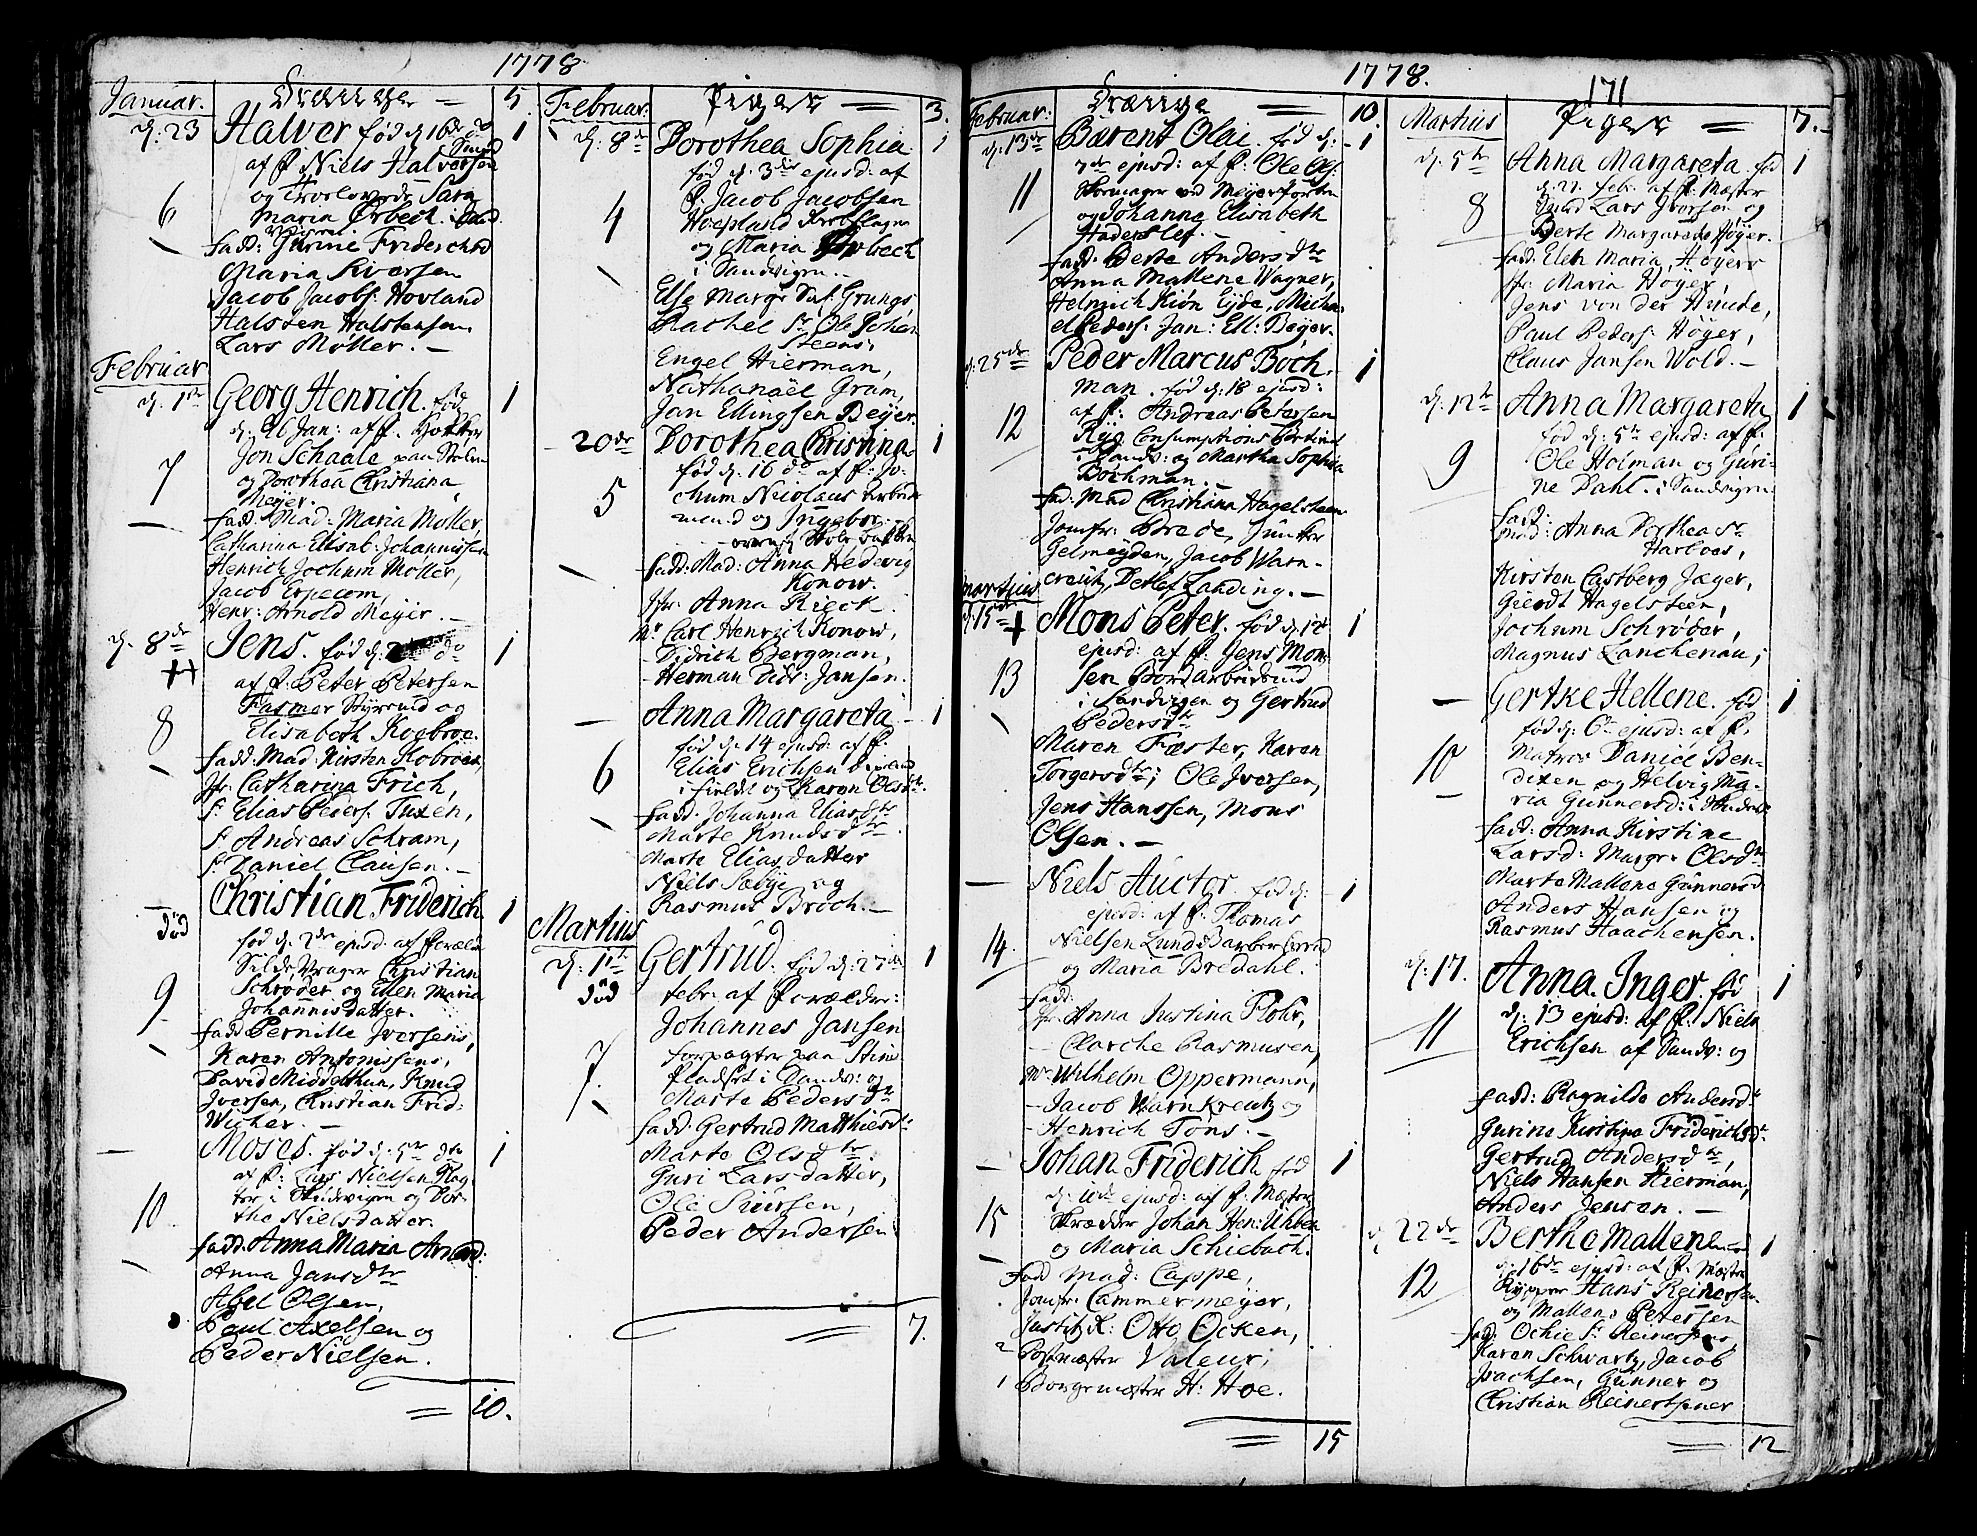 1778
Januar. Drænge — 5.
d: 23 Halver født d: 16de do 1
af F: Niels Halversen Smed
og Troelovede Sara
6 Maria Ørbech
Fadd: Gurine Friderichsd
Maria Siversen
Jacob Jacobs: Hovland
Halsten Halstensen.
Lars Møller. —
Februar
d. 1ste Georg Henrich. fød 1
d: 26 Jan: af F.
Jon Schaale paa Stolen
7 og Dorothea Christiana
Meyer.
Fadd: Mad: Maria Møller
Catharina Elisab: Johannissen
Henrich Jochum Møller,
Jacob Erpecom,
Henr: Arnold Meyer. —
d. 8de Jens. fød d: do 1
af F: Peter Petersen
Fasmer Styrmd og
8 Elisabeth Koebroe.
Fadd: Mad: Kirsten Kobroes,
Jfr: Catharina Frich,
Sr. Elias Peders. Tuxen,
Sr. Andreas Schram,
Sr. Daniel Clausen. —
— Christian Friderich 1
død
fød d. 2de ejusd: af Foræld:
Silde Vrager Christian
Schrøder og Ellen Maria
9 Johannisdatter.
Fadd Pernille Iversens,
Karen Antonissens,
David Middelthun, Knud
Iversen, Christian Frid:
Wicher. —
— Moses. fød d: 5te do 1
af F: Lars Nielsen
i Sandvigen og Dor-
10 the Nielsdatter.
Fadd. Anna Maria
Anna Jansdtr
Abel Olsen,
Paul Axelsen og
Peder Nielsen.
= 10.
Februar: Piger — 3.
d: 8de Dorothea Sophia. 1
fød d. 3die ejusd: af
4 F. Jacob Jacobsen
Hopland
og Maria Ørbech
i Sandvigen. —
Else Margr Grungs
Rachel Sr Ole Johan
Steens,
Engel Hierman,
Nathanaël Gram,
Jan Ellingsen Beyer.
— 20de Dorothea Christina. 1
fød d: 16 do af F: Jo-
5 chum Nicolaus Arbeids
mand og Ingebor
Fadd: Mad: Anna Hedevig
Konow.
Jfr: Anna Rieck.
Mr Carl Henrich Konow,
— Didrich Bergman,
— Herman Didr: Jansen.
— Anna Margareta — 1
fød d: 14 ejusd: af F.
6 Elias Erichsen
og Karen Olsdtr.
Fadd. Johanna Eliasdtr
Marte Knudsdtr
Marte Elias datter
Niels Sæbye og
Rasmus Broch. —
Martius
d: 1te Gertrud. fød d: 27de 1
død febr: af Forældre:
Johannes Jansen
forpagter paa Stine
7. Pladset i Sandv: og
Marte Pedersdtr
Fadd: Gertrud Matthiesdr
Marte Olsdtr.
Guri Larsdatter,
Ole Siursen,
Peder Andersen.
= 7.
1778. 171
Februar: Drænge = 10.
d. 13de Barent Olai. fød d: 1
7de ejusd: af F: Ole Ols:
11 Skomager ved Meyerforten
og Johanna Elisabeth
Hadersløf. —
Fadd. Berte Andersdtr
Anna Mallene Wagner,
Helmich Kiøn Eyde, Micha-
el Peders: Jan: Ell: Beyer.
d. 25de Peder Marcus Boch 1
man. fød d: 18 ejusd:
af F. Andreas Petersen
12 Ryg Consumptions Betient
i Sandv: og Martha Sophia
Bochman. —
Fad: Mad Christiana Hagelsteen
Jomfr: Brede, Junker
Gelmeyden, Jacob Warn-
creutz, Detlef Landing. —
Martius
d. 15de Mons Peter. fød d. 12 1
ejusd: af F. Jens Mon-
13 sen Bordarbeidsmd
i Sandvigen og Gertrud
Pedersdtr
Maren Fæster, Karen
Torgersdtr; Ole Iversen,
Jens Hanssen, Mons
Olsen. —
— Niels Auctor. fød d: 1
ejusd: af F. Thomas
14. Nielsen Lund Barber
og Maria Bredahl.
Fadd:
Jfr: Anna Justina Flohr,
— Clarche Rasmusen,
Mr. Wilhelm Oppermann,
— Jacob Warnkreutz og
— Henrich Tons. —
— Johan Friderich fød 1
d. 11de ejusd: af F: Mæster
15 Skrædder Johan Hen: Uhben
og Maria Schiebach.
Fadd Mad: Cappe,
Jomfr: Cammermeyer,
Justitz R: Otto Ocken,
Postmæster Valeur,
Borgemæster H: Hoe.
= 15
Martius Piger — 7. —
d. 5te Anna Margareta. fød 1
d. 27. febr. af F: Mæster
8 Smed Lars Iversen og
Berte Margareta Høyer.
Fadd: Elen Maria, Høyers
Jfr: Maria Høyer,
Jens von der Hude,
Paul Peders: Høyer,
Claus Jansen Wold. —
d. 12te Anna Margareta, 1
fød d. 5te ejusd: af F:
9 Ole Holman og Guri-
ne Dahl. i Sandvigen.
Fadd:
Mad: Anna Dorthea Sr
Harboes,
Kirsten Castberg Jæger,
Gierdt Hagelsteen,
Jochum Schrøder,
Magnus Lanchenau;
— Gertke Hellene. fød 1
fød d. 6te ejusd: af F.
10 Matros Daniel Ben-
dixen og Helvig Ma-
ria Gunnersd:
Fadd: Anna Kirstine
Larsd: Margr: Olsdtr
Marte Mallene Gunnersd
Anders Hansen og
Rasmus Haachensen.
d. 17. Anna Inger. fød 1
d: 13 ejusd: af F: Niels
11 Erichsen af Sandv: og
Fadd: Ragnilde Andersdr
Gurine Kirstina Friderichsdr
Gertrud Andersdtr,
Niels Hansen Hierman,
Anders Jensen. —
d. 22de Berthe Mallene 1
d. 16de ejusd: af F. Mæster
12 Kypper Hans Reinersen
og Mallene Petersen
Fad: Ochie Sr Reinersens
Karen Schwartz, Jacob
Isachsen, Gunner og
Christian Reinertsener
= 12